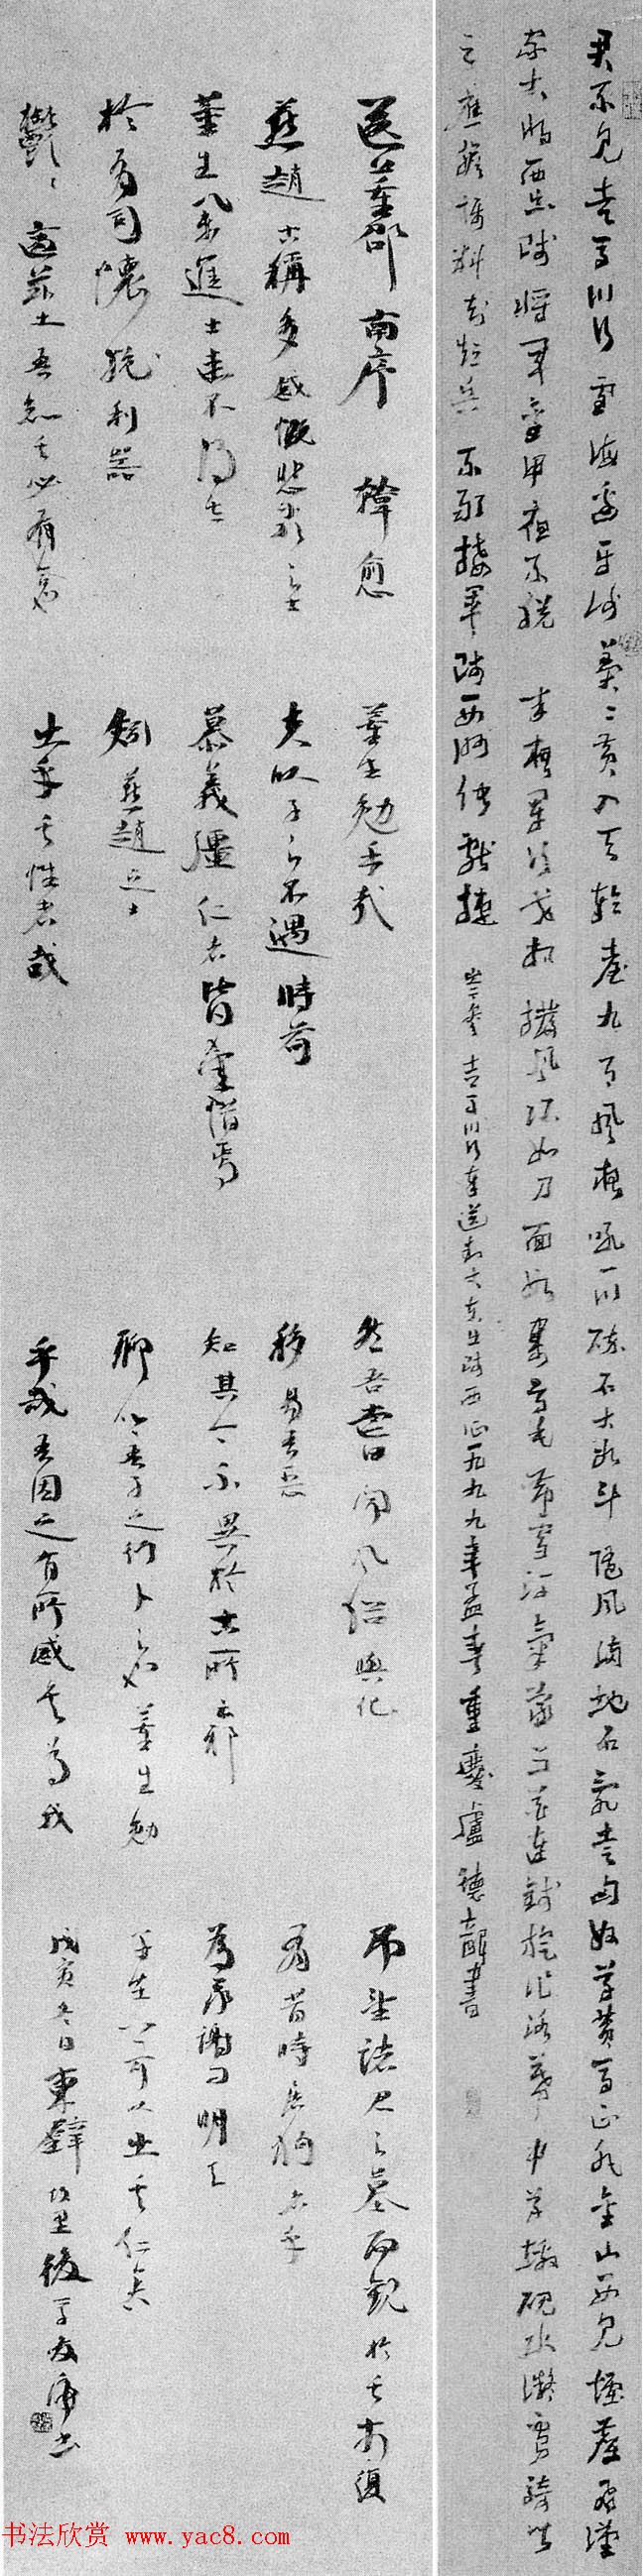 君不見走馬川行雪海邊平沙莽莽黃入天輪臺九月風夜吼一川碎石大如斗隨風滿地石亂走匈奴草黃馬正肥金山西見煙塵飛漢
家大將西出師將軍金甲夜不脫半夜軍行戈相撥風頭如刀面如割馬毛帶雪汗氣蒸五花連錢旋作冰幕中草檄硯水凝虜騎聞
之應膽懾料知短兵不敢接車師西門佇獻捷 岑參走馬川行奉送封大夫出師西征一九九九年孟春重慶盧德龍書
送董邵南序 韓愈
燕趙古稱多感慨悲歌之士
董生舉進士連不得志
於有司懷抱利器
鬱鬱適茲土吾知其必有合也
董生勉乎哉
夫以子之不遇時苟
慕義彊仁者皆愛惜焉
矧燕趙之士
出乎其性者哉
然吾嘗聞風俗與化
移易吾惡
知其今不異於古所云邪
聊以吾子之行卜之也董生勉
乎哉吾因之有所感矣為我
弔望諸君之墓而觀於其市復
有昔時屠狗者乎
為我謝曰明天
子在上可以出而仕矣
戊寅冬日東壁後學友書
书法欣赏 www.yac8.com